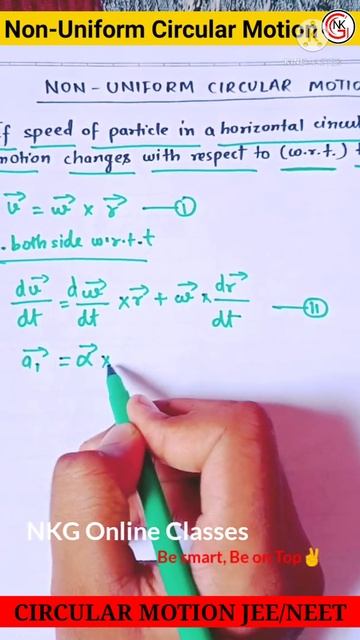 Non-Uniform Circular Motion
NK
NON - UNIFORM CIRCULAR MOTIO
f speed of particle in a horizontal circul
motion changes with respect to (w.r.t.) t
v⃗ = w⃗ × r⃗ — (i)
. both side w.r.t. t
dv⃗/dt = dw⃗/dt × r⃗ + w⃗ × dr⃗/dt — (ii)
a⃗₁ = α⃗ ×
NKG Online Classes
Be smart, Be on Top✌
CIRCULAR MOTION JEE/NEET